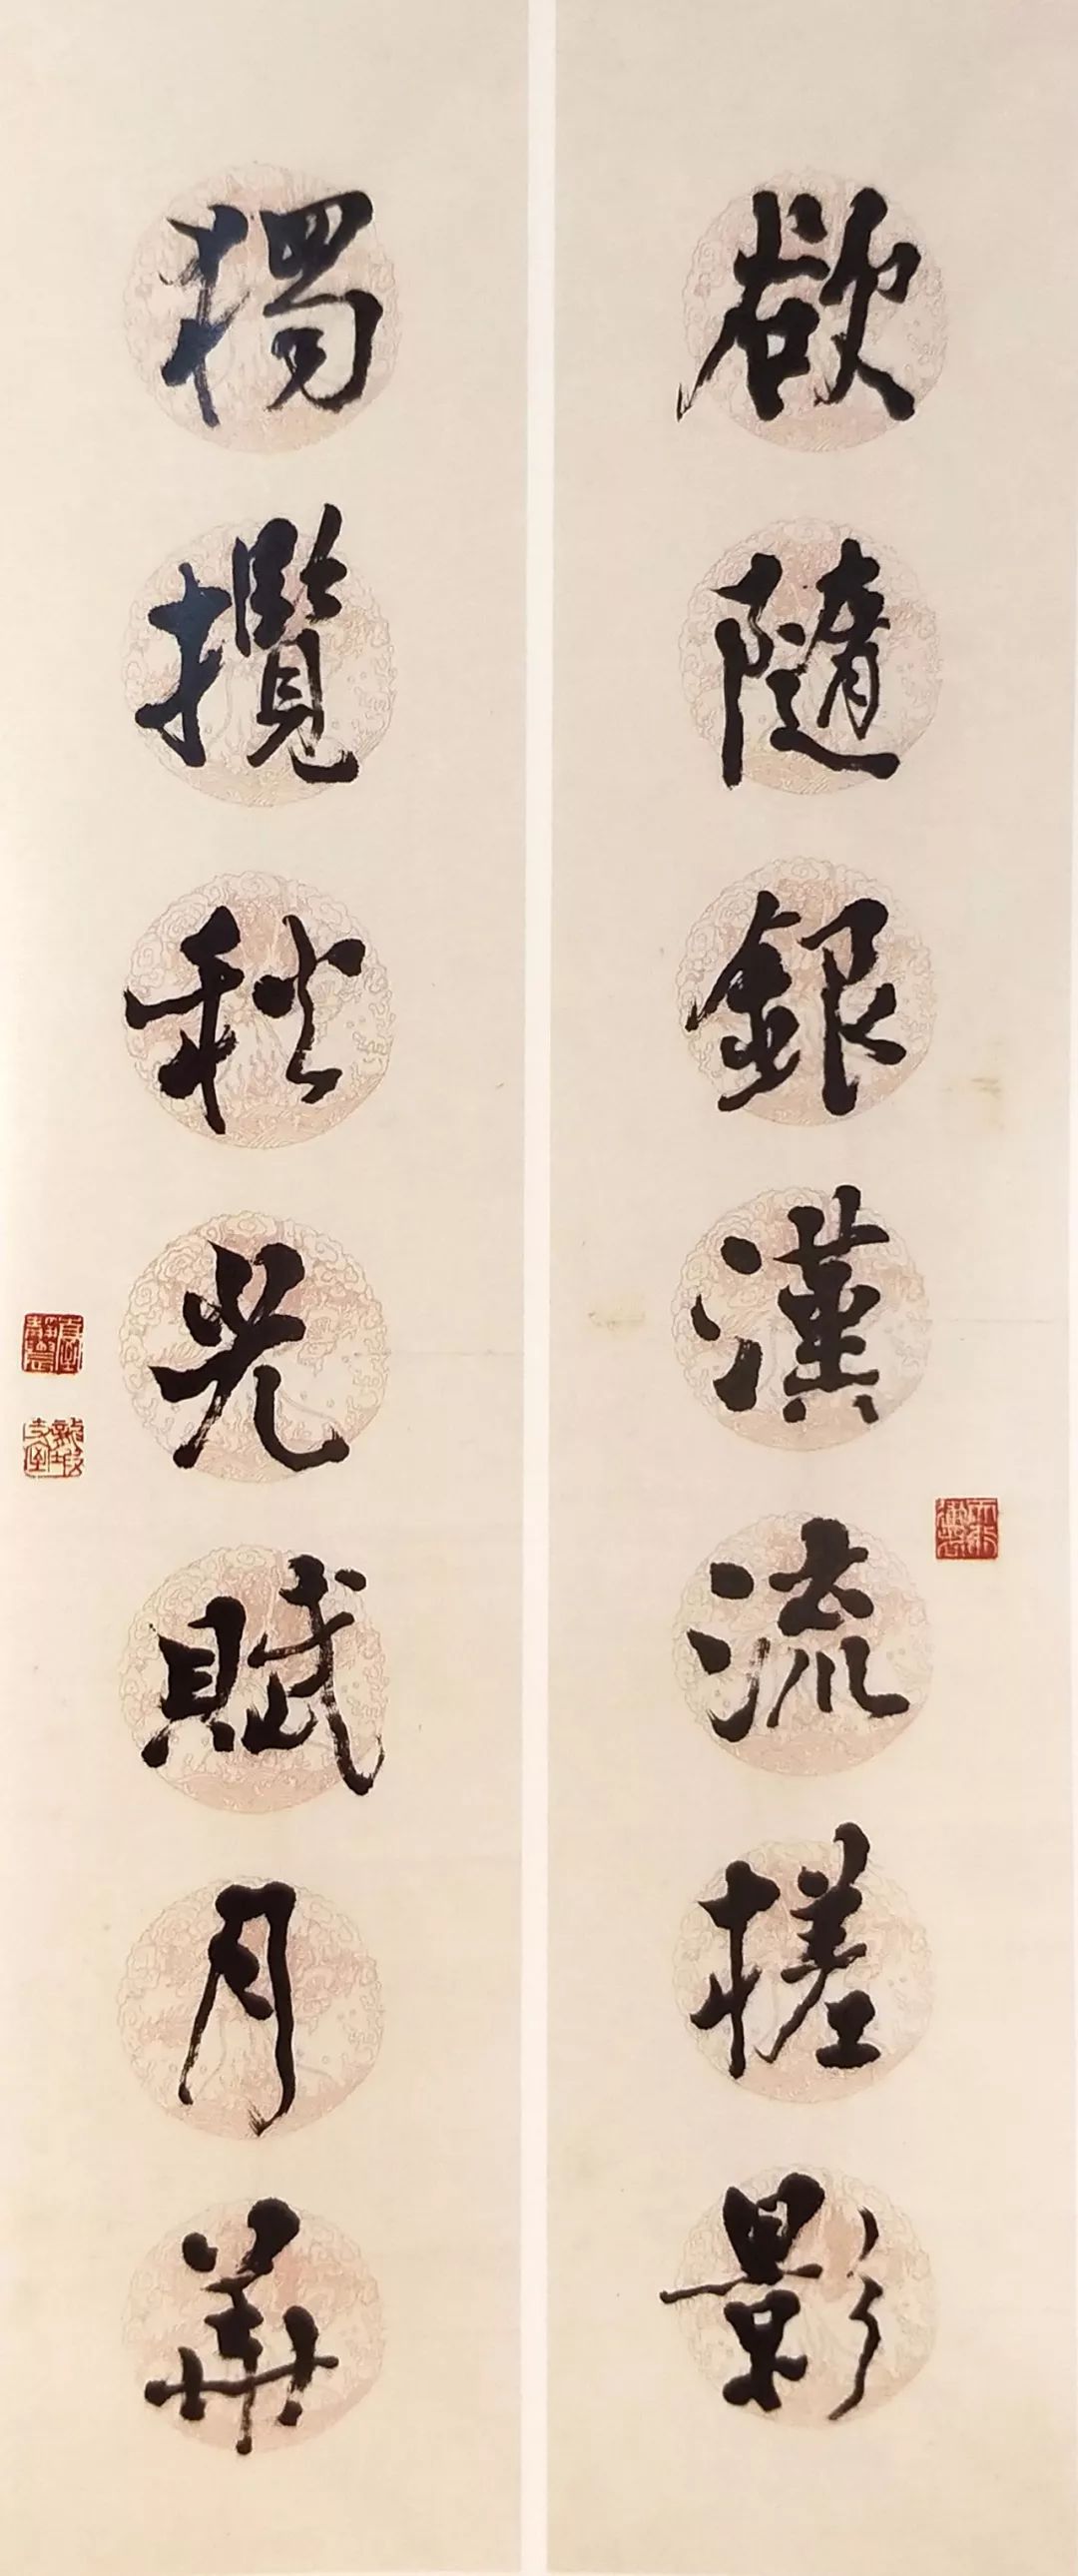 欲隨銀漢流槎影
獨攬秋光賦月華